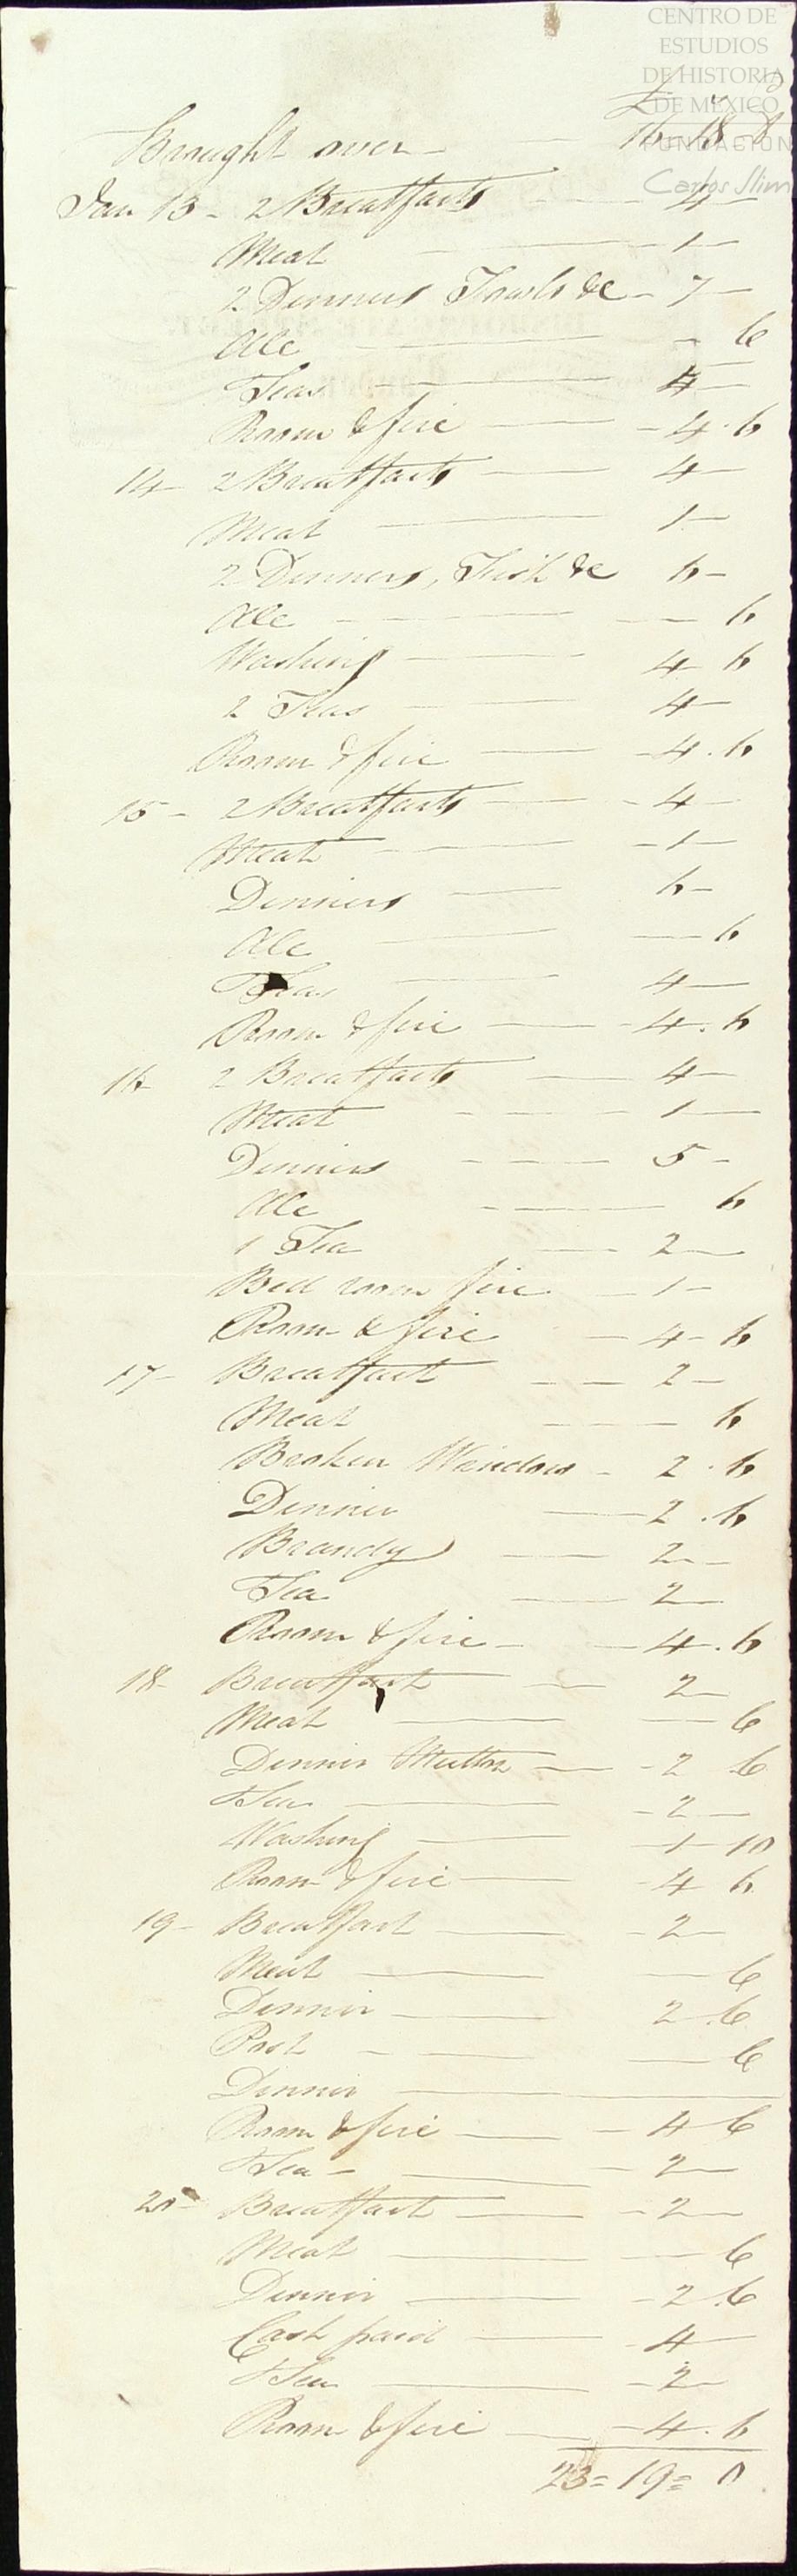 CENTRO DE
ESTUDIOS
DE HISTORIA
DE MÉXICO
FUNDACIÓN
Carlos Slim
£ s d
Brought over — 16-18-8
Jan 13 - 2 Breakfasts — 4 —
Meat — 1 —
2 Dinners Fowls &c - 7 —
Ale — - 6
Teas — 4 —
Room & fire — 4 . 6
14 - 2 Breakfasts — 4 —
Meat — 1 —
2 Dinners, Fish &c 6 —
Ale — — 6
Washing — 4 6
2 Teas — 4 —
Room & fire — 4 . 6
15 - 2 Breakfasts — 4 —
Meat — 1 —
Dinners — 6 —
Ale — — 6
Teas — 4 —
Room & fire — 4 . 6
16 2 Breakfasts — 4 —
Meat — 1 —
Dinners — 5 —
Ale — 6
1 Tea — 2 —
Bed room fire — 1 —
Room & fire — 4 - 6
17 - Breakfast — 2 —
Meat — 6
Broken Window - 2 . 6
Dinner — 2 . 6
Brandy — 2 —
Tea — 2 —
Room & fire — 4 . 6
18 - Breakfast — 2 —
Meat — — 6
Dinner Mutton — 2 6
Tea — 2 —
Washing — 1 - 10
Room & fire — 4 6
19 - Breakfast — 2 —
Meat — — 6
Dinner — 2 . 6
Post — — 6
Dinner —
Room & fire — 4 6
Tea — 2 —
20 - Breakfast — 2 —
Meat — — 6
Dinner — 2 . 6
Cash paid — 4 —
Tea — 2 —
Room & fire — 4 . 6
23 = 19 = 0